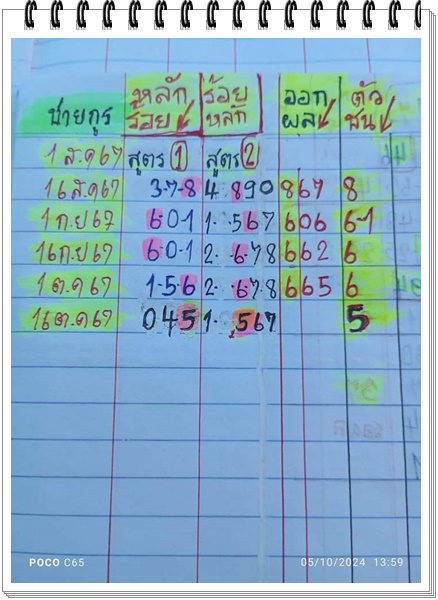 ชายกูร หลักร้อย ร้อยหลัก ออกผล ตัวชน
1 ส.ค 67 สูตร 1 สูตร 2
16 ส.ค 67 3-7-8 4. 890 867 8
1 ก.ย 67 6-0-1 1. 567 606 6-1
16 ก.ย 67 6-0-1 2. 6-78 662 6
1 ต.ค 67 1-5-6 2. 6-7-8 665 6
16 ต.ค 67 045 1. 567 5
POCO C65 05/10/2024 13:59